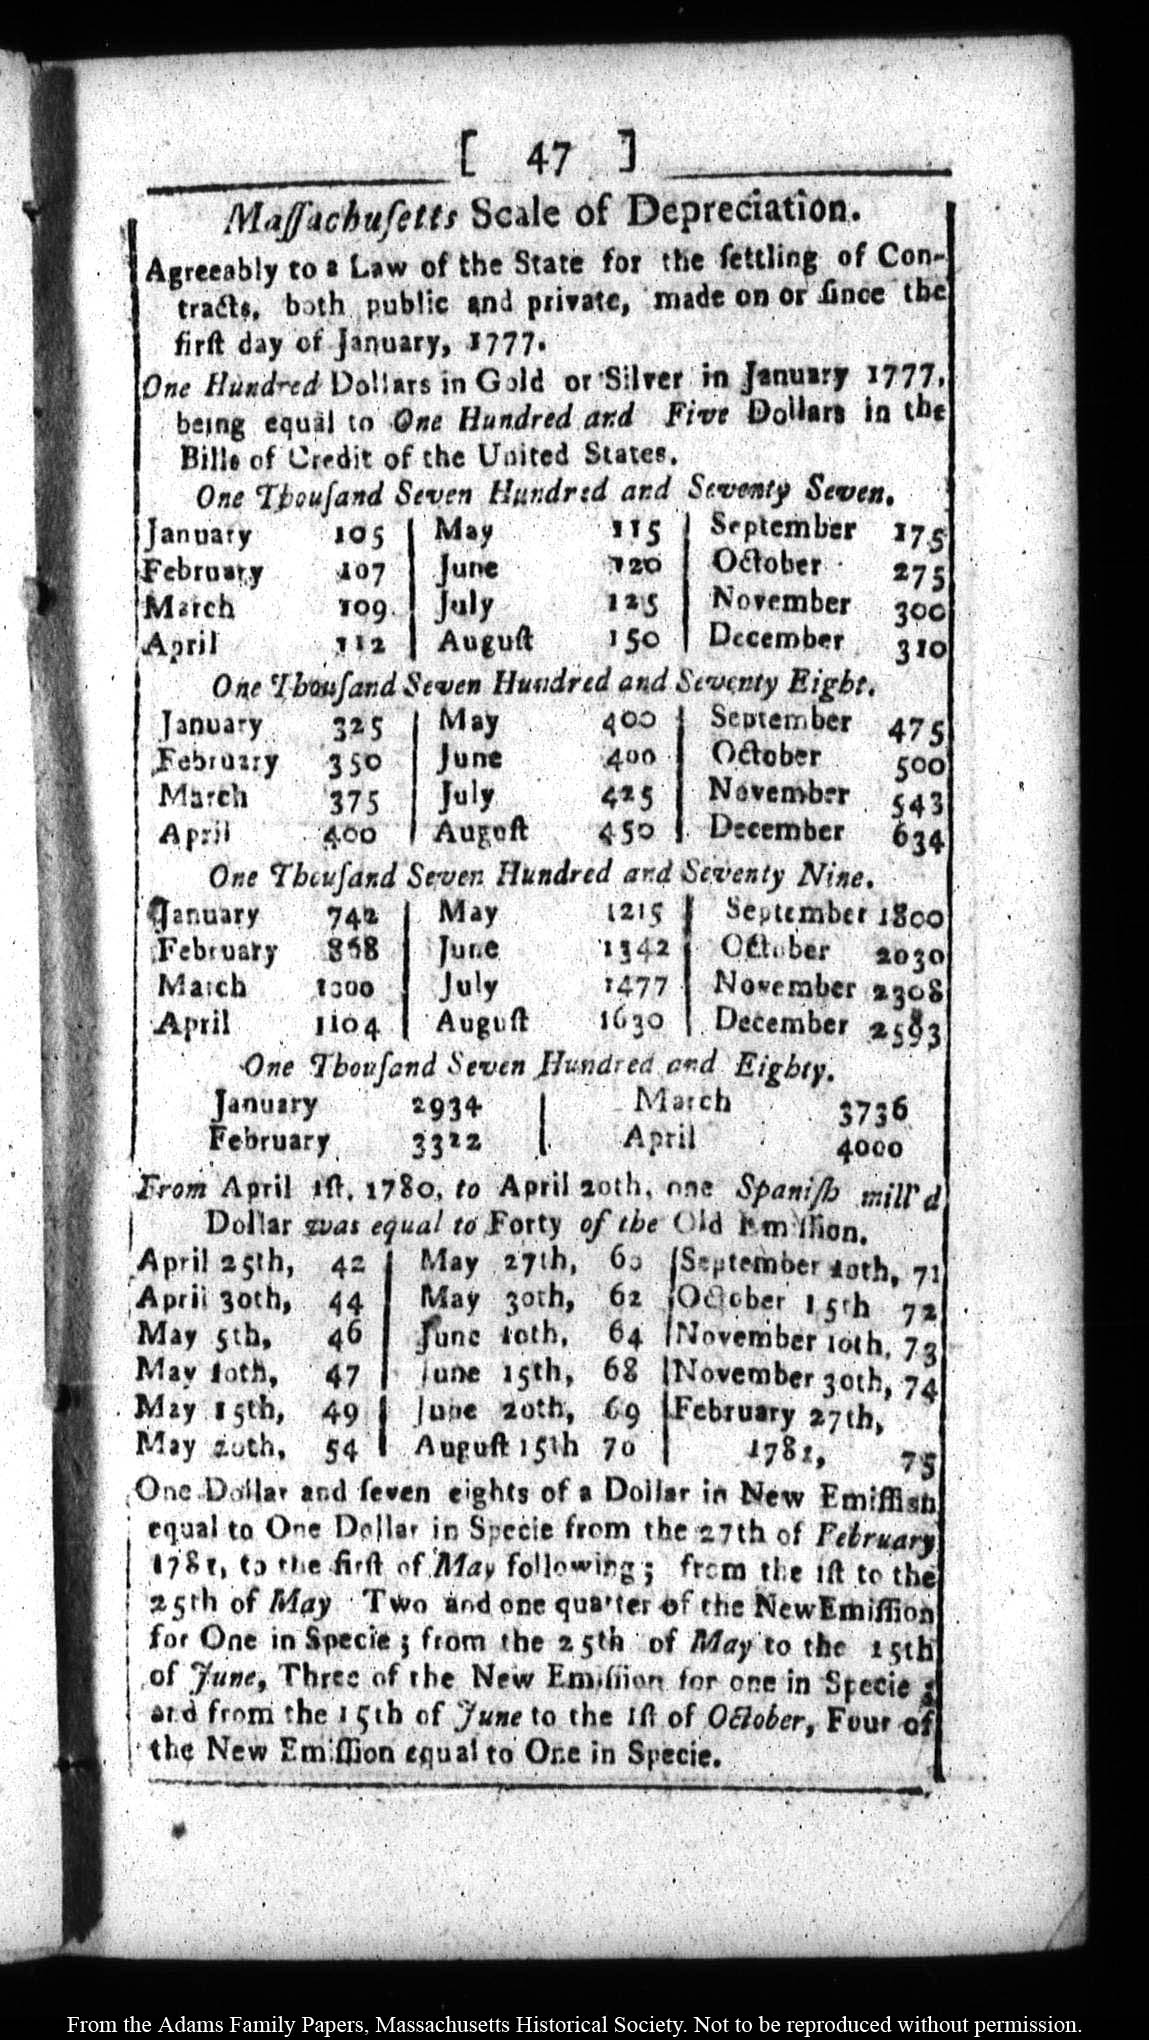 [ 47 ]
Maſſachuſetts Scale of Depreciation.
Agreeably to a Law of the State for the ſettling of Con-
tracts, both public and private, made on or ſince the
firſt day of January, 1777.
One Hundred Dollars in Gold or Silver in January 1777,
being equal to One Hundred and Five Dollars in the
Bills of Credit of the United States.
One Thouſand Seven Hundred and Seventy Seven.
January 105 | May 115 | September 175
February 107 | June 120 | October 275
March 109 | July 125 | November 300
April 112 | Auguſt 150 | December 310
One Thouſand Seven Hundred and Seventy Eight.
January 325 | May 400 | September 475
February 350 | June 400 | October 500
March 375 | July 425 | November 543
April 400 | Auguſt 450 | December 634
One Thouſand Seven Hundred and Seventy Nine.
January 742 | May 1215 | September 1800
February 868 | June 1342 | October 2030
March 1000 | July 1477 | November 2308
April 1104 | Auguſt 1630 | December 2593
One Thouſand Seven Hundred and Eighty.
January 2934 | March 3736
February 3322 | April 4000
From April 1ſt, 1780, to April 20th, one Spaniſh mill'd
Dollar was equal to Forty of the Old Emiſſion.
April 25th, 42 | May 27th, 60 | September 10th, 71
April 30th, 44 | May 30th, 62 | October 15th 72
May 5th, 46 | June 10th, 64 | November 10th, 73
May 10th, 47 | June 15th, 68 | November 30th, 74
May 15th, 49 | June 20th, 69 | February 27th,
May 20th, 54 | Auguſt 15th 70 | 1781, 75
One Dollar and ſeven eights of a Dollar in New Emiſſion
equal to One Dollar in Specie from the 27th of February
1781, to the firſt of May following; from the 1ſt to the
25th of May Two and one quarter of the New Emiſſion
for One in Specie; from the 25th of May to the 15th
of June, Three of the New Emiſſion for one in Specie;
and from the 15th of June to the 1ſt of October, Four of
the New Emiſſion equal to One in Specie.
From the Adams Family Papers, Massachusetts Historical Society. Not to be reproduced without permission.